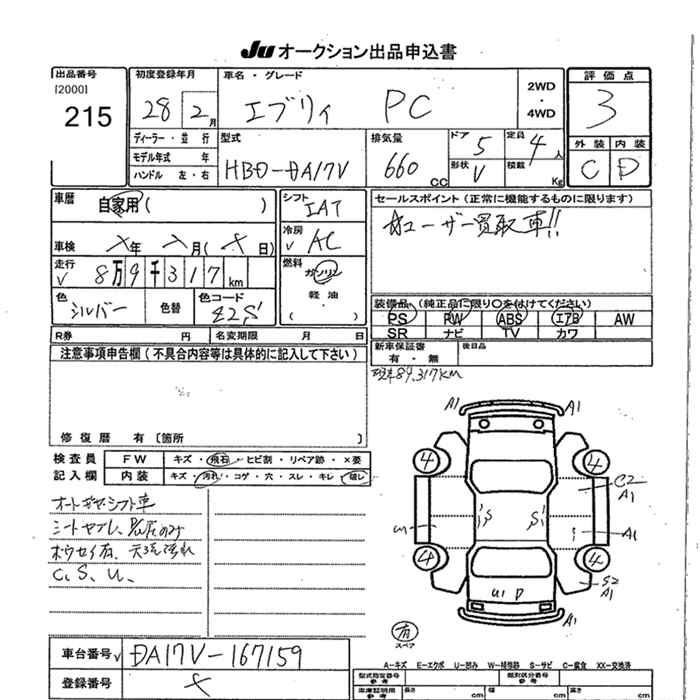 JU オークション出品申込書
出品番号
[2000]
215
初度登録年月
28 2月
車名・グレード
エブリィ PC
2WD
・
4WD
評価点
3
ディーラー・並行
モデル年式 年
ハンドル 左・右
型式
HBD-DA17V
排気量
660 CC
ドア 5
形状 V
定員 4人
積載 Kg
外装 内装
C D
車歴
自家用( )
車検 年 月( 日)
走行
8万9千317km
色
シルバー
色替
色コード
Z2S
シフト
IAT
冷房
AC
燃料
ガソリン
軽油
( )
セールスポイント(正常に機能するものに限ります)
ユーザー買取車!!
装備品(純正品に限り〇を付けてください)
PS PW ABS エアB AW
SR ナビ TV カワ
新車保証書
有・無
後日品
R券 円 名変期限 月 日
注意事項申告欄(不具合内容等は具体的に記入して下さい)
現車89,317km
修復歴 有〔箇所 〕
検査員
記入欄
FW キズ・飛石・ヒビ割・リペア跡・×要
内装 キズ・汚れ・コゲ・穴・スレ・キレ・破レ
オートギヤシフト車
C、S、U、
A1 A1
4 4
C2
A1
S S
A1
4 4
S2
A1
U1 P
A1
有
スペア
車台番号 DA17V-167159
登録番号
A-キズ E-エクボ U-凹み W-補修跡 S-サビ C-腐食 XX-交換済
型式指定番号
参考
類別区分番号
参考
車庫証明用
参考
長さ cm 幅 cm 高さ cm